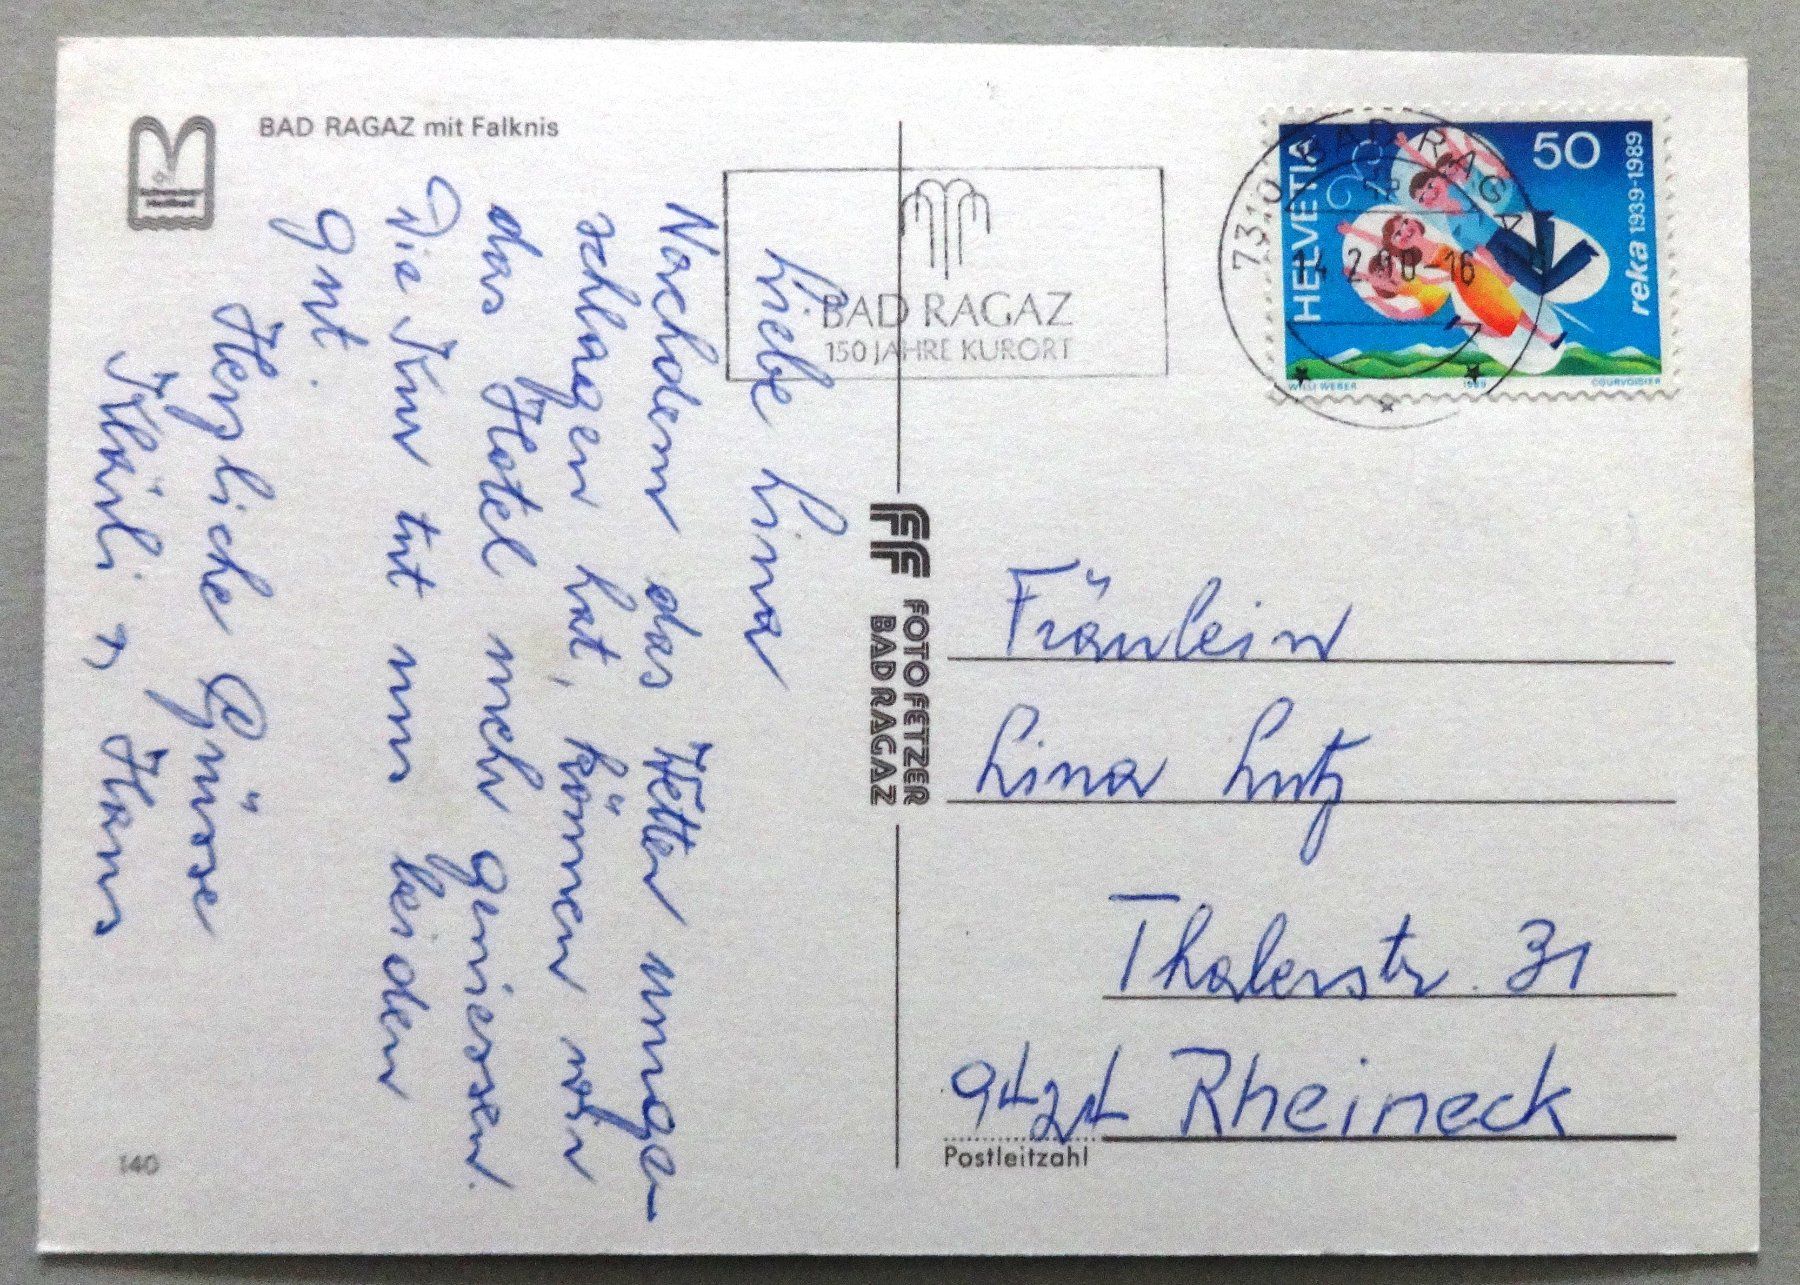 BAD RAGAZ mit Falknis
Schweizer
Heilbad
Liebe Lina
Nachdem das Wetter umge-
schlagen hat, können wir
das Hotel mehr geniessen.
Die Kur tut uns beiden
gut.
Herzliche Grüsse
Klärli & Hans
140
BAD RAGAZ
150 JAHRE KURORT
FOTO FETZER
BAD RAGAZ
7310 BAD RAGAZ
14.2.90-16
HELVETIA
50
reka 1939-1989
WILLI WEBER
1989
COURVOISIER
Fräulein
Lina Lutz
Thalerstr. 31
9424 Rheineck
Postleitzahl